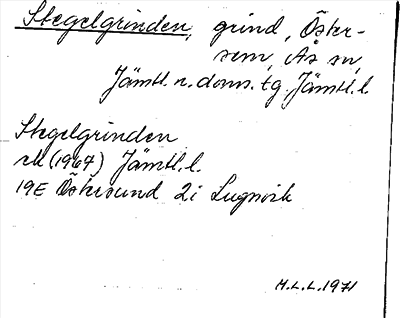 Stegelgrinden, grind, Öster-
sem, Ås sn,
Jämtl. n. doms. tg. Jämtl. l.
Stegelgrinden
ek (1964) Jämtl. l.
19E Östersund 2i Lugnvik
M.L.L. 1971